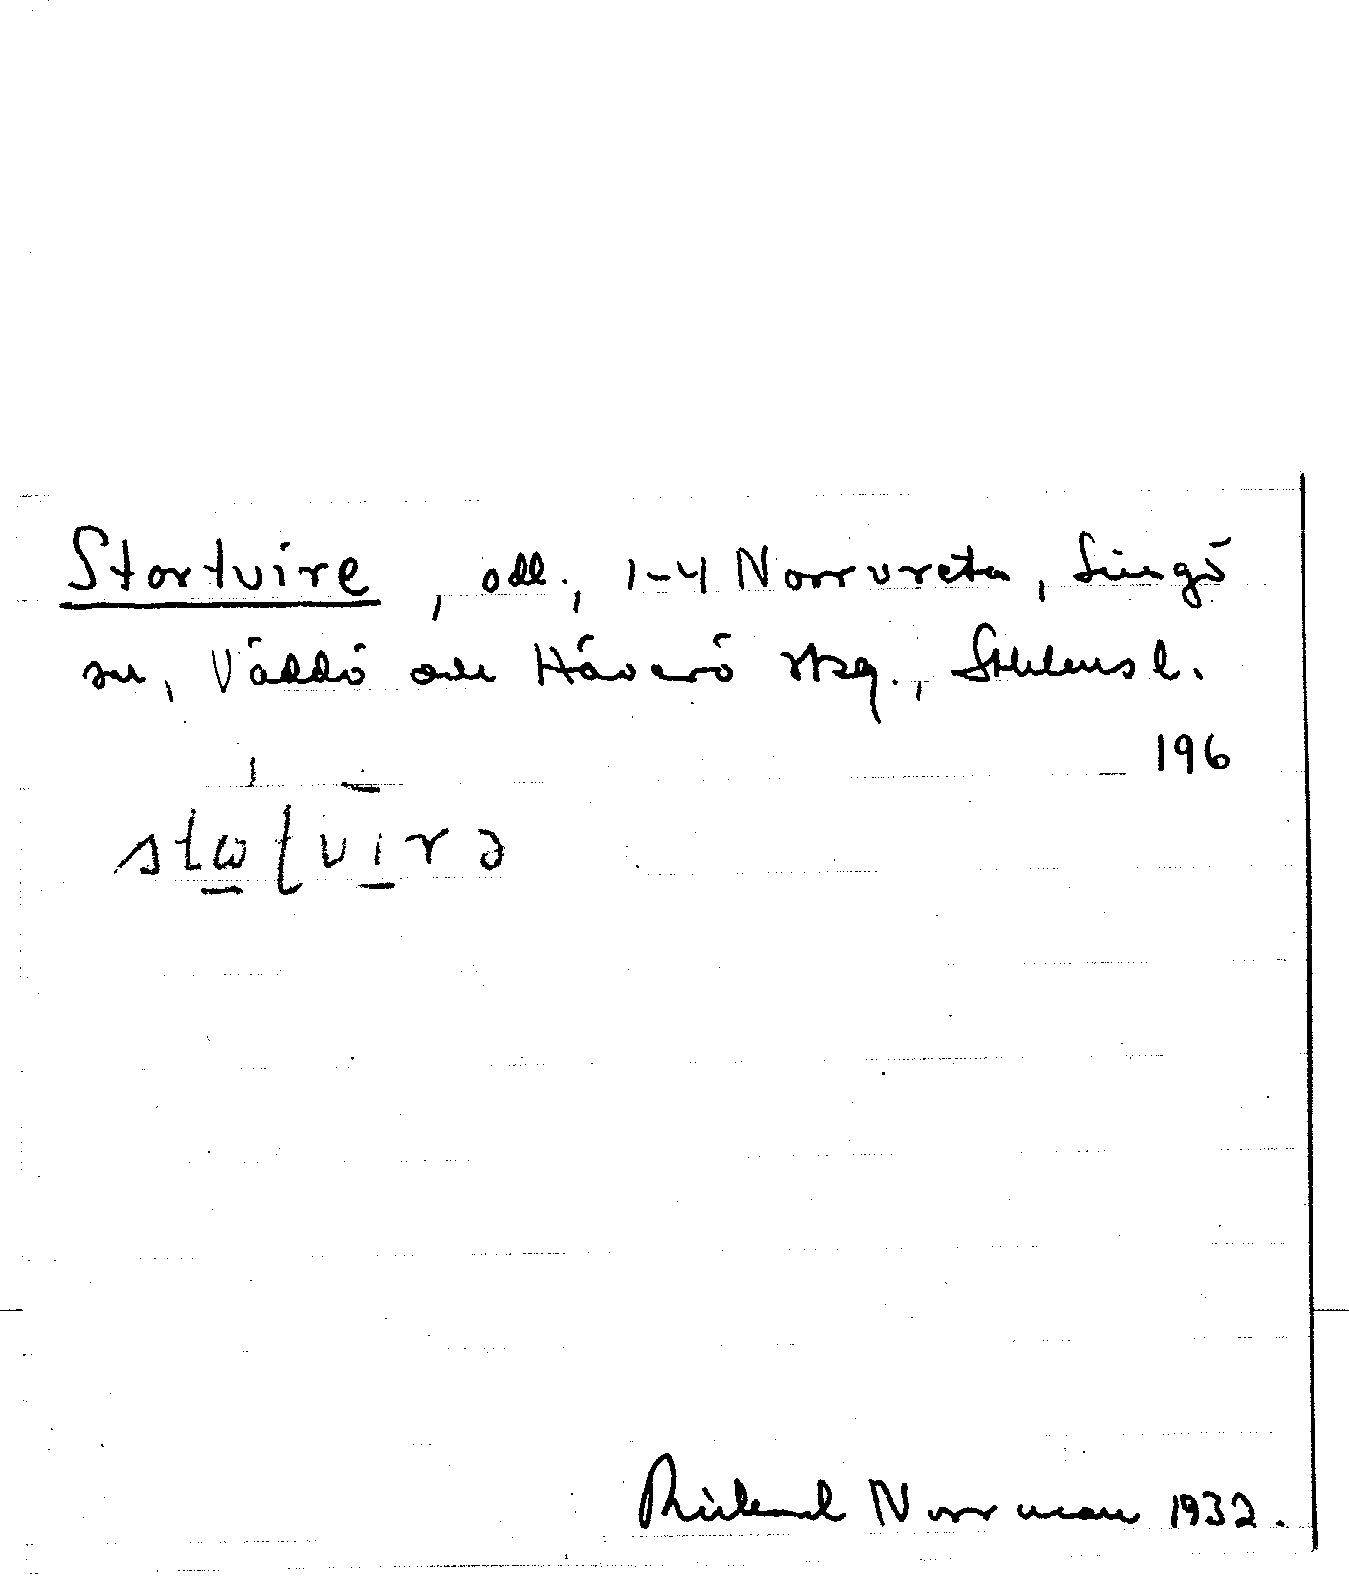 Stortvire, odl., 1-4 Norrvreta, Singö
sn, Väddö och Häverö skg., Sthlms l.
196
Rickard Norrman 1932.